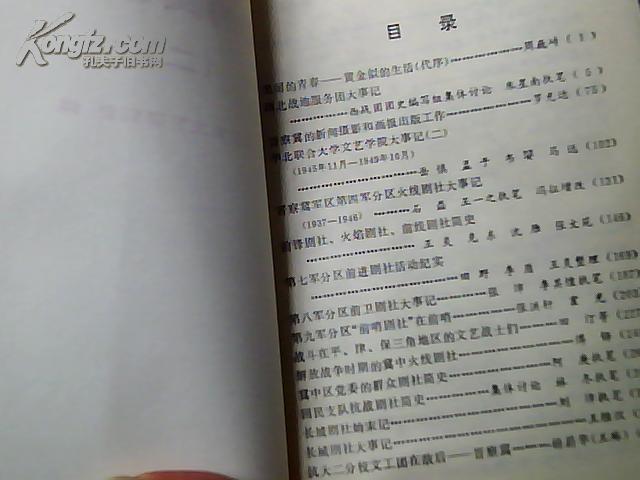 Kongfz.com
孔夫子旧书网
目 录
的青春——黄金似的生活(代序)——周巍峙(1)
北战地服务团大事记
西战团团史编写组集体讨论 朱星南执笔(5)
晋察冀的新闻摄影和画报出版工作——罗光达(75)
华北联合大学文艺学院大事记(二)
(1945年11月—1949年10月)
孟于 韦 马远(102)
晋察冀军区第四军分区火线剧社大事记
(1937—1946)——石磊 王一之执笔 冯征增改(121)
前锋剧社、火焰剧社、前线剧社简史
王炎 张文苑(146)
第七军分区前进剧社活动纪实
田野 王炎整理(169)
第八军分区前卫剧社大事记——张津 执笔(187)
第九军分区“前哨剧社”在前哨——张
战斗在平、津、保三角地区的文艺战士们——田
解放战争时期的冀中火线剧社
冀中区党委的群众剧社简史——阿
回民支队抗战剧社简史——集体讨论 林冬执笔
长城剧社始末记——刘沛执笔
长城剧社大事记
抗大二分校文工团在敌后——晋察冀